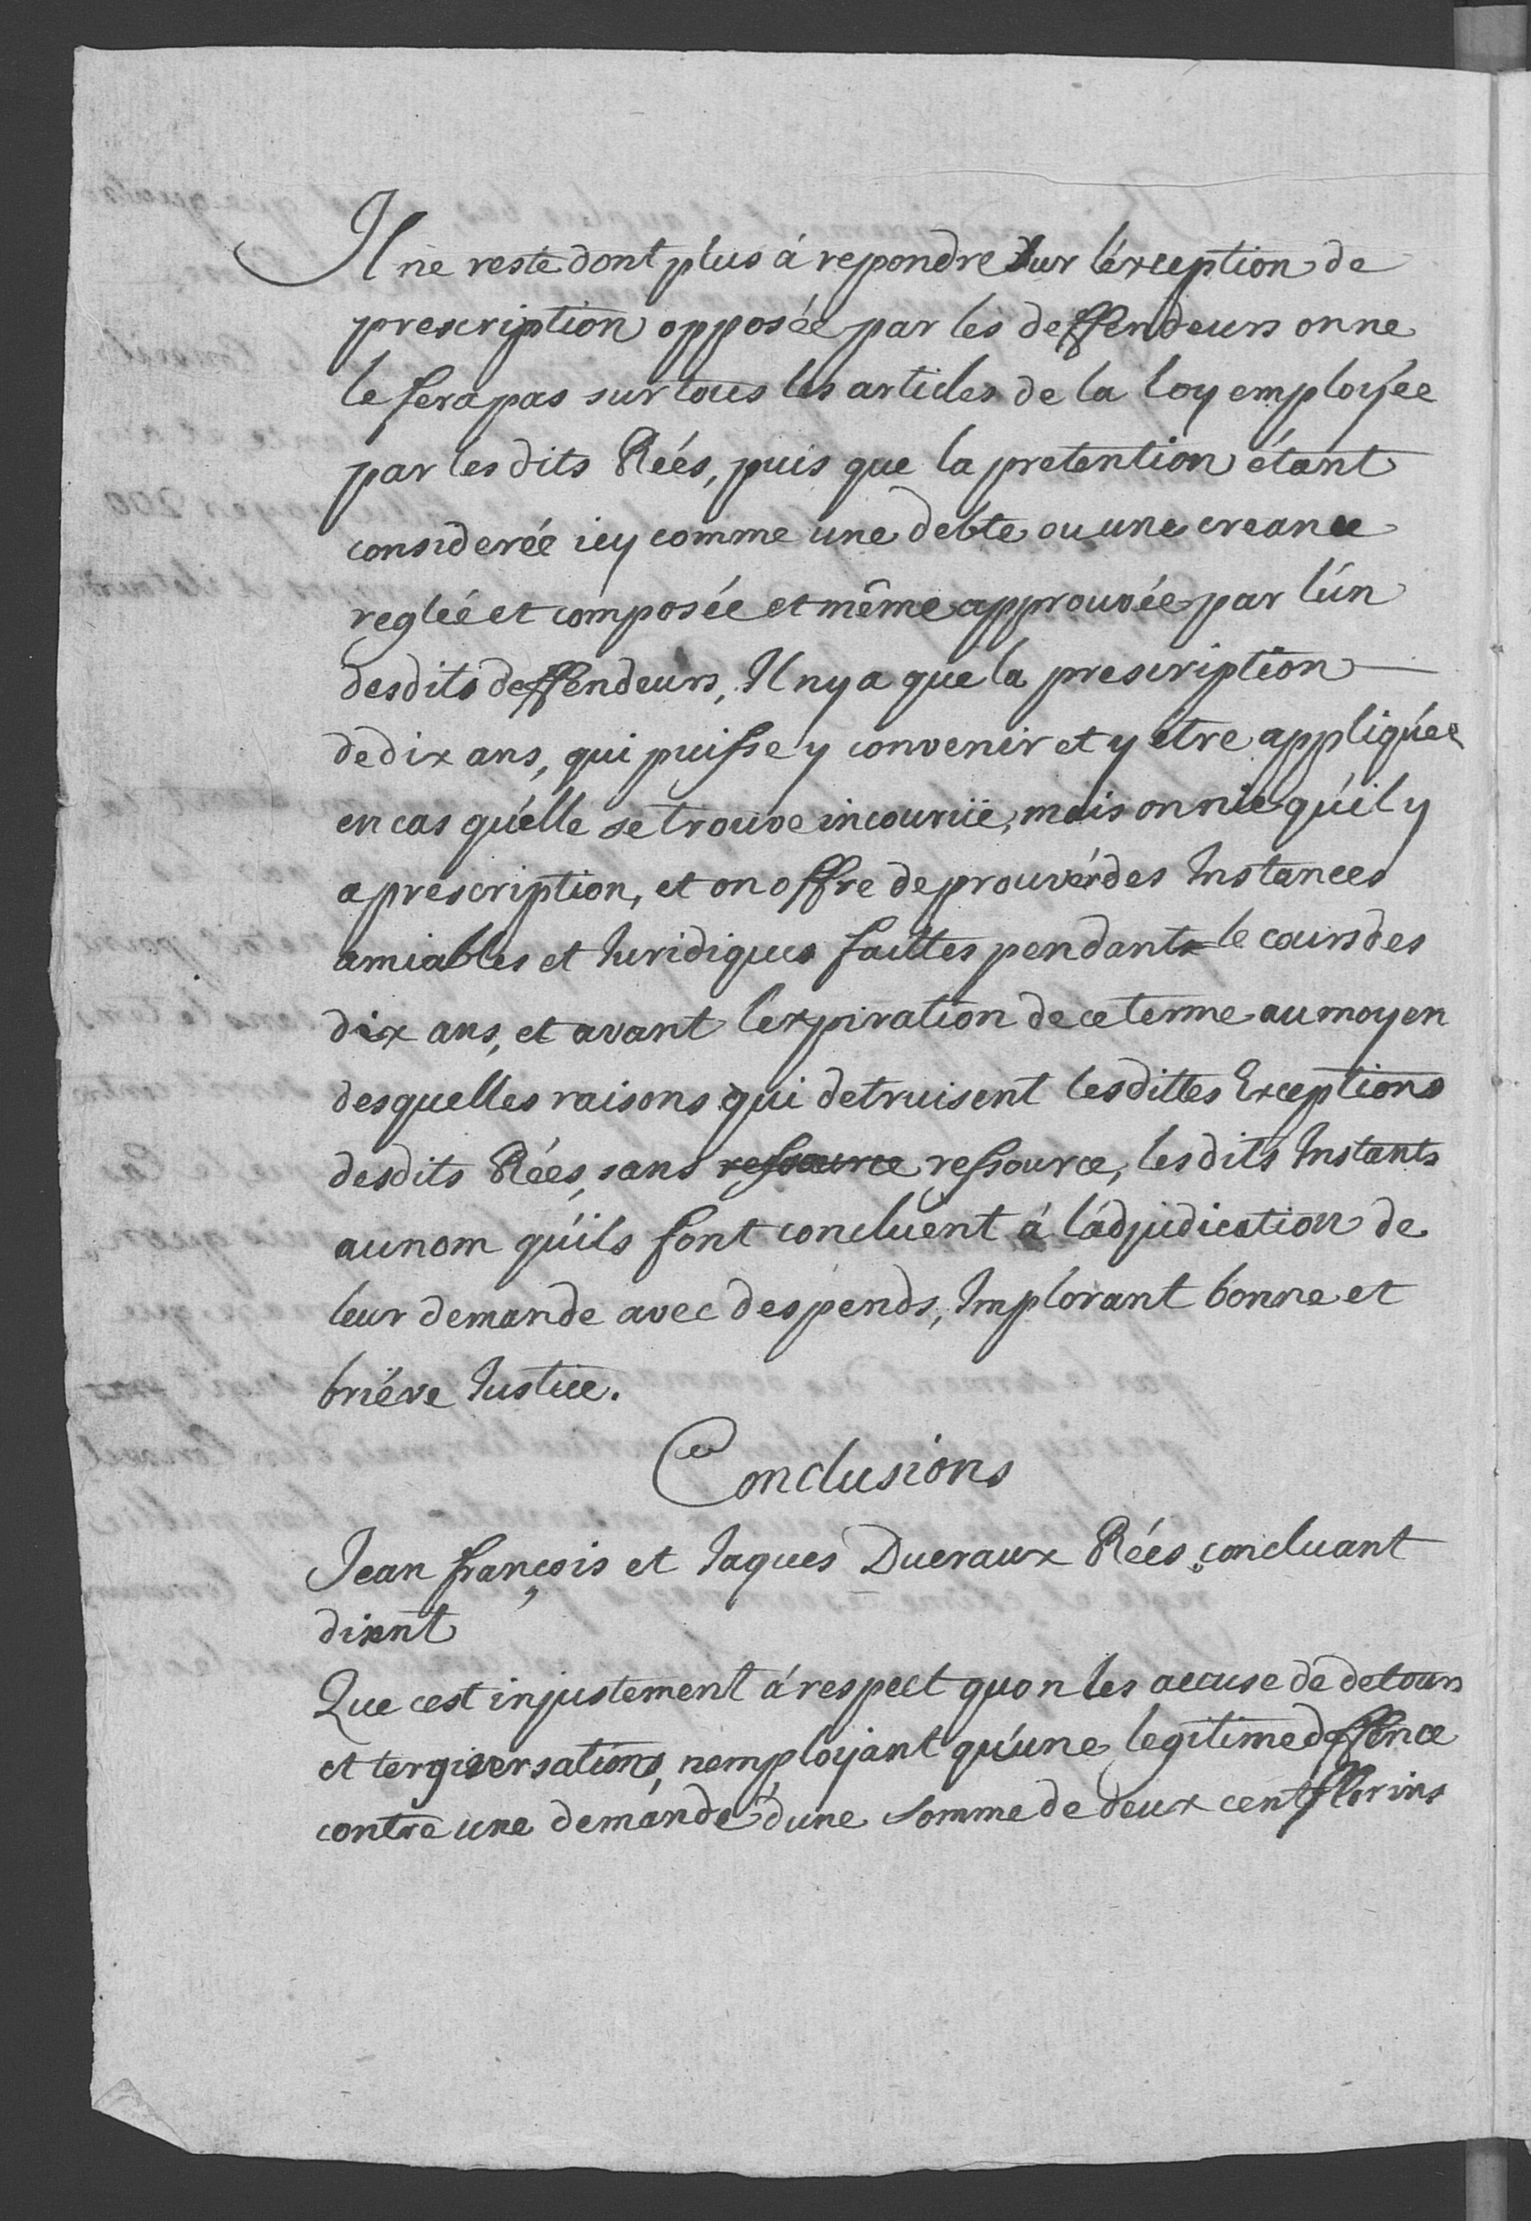 Il ne reste dont plus á repondre sur l'éxception de
prescription opposée par les deffendeurs on ne
le fera pas sur tous les articles de la loy employée
par les dits Réés, puis que la pretention étant
considerée icy comme une debte ou une creance
regleé et composée et même approuvée par l'ún
desdits deffendeurs, Il ny a que la prescription
de dix ans, qui puisse y convenir et y etre appliquée
en cas qu'elle se trouve incourüe, mais on nie qu'il y
a prescription, et on offre de prouvér des Instances
amiables et Juridiques faittes pendant le cours des
dix ans, et avant l'expiration de ce terme au moyen
desquelles raisons qui detruisent lesdittes Exceptions
desdits Réés, sans ressource ressource, lesdits Instants
au nom qu'ils sont concluent á l'adjudication de
leur demande avec despends, Implorant bonne et
briéve Justice.
Conclusions
Jean françois et Jaques Ducraux Réés concluant
disent
Que cest injustement á respect quon les accuse de detours
et tergiversations, nemployant qu'une legitime deffence
contre une demande d'une somme de deux cent fflorins